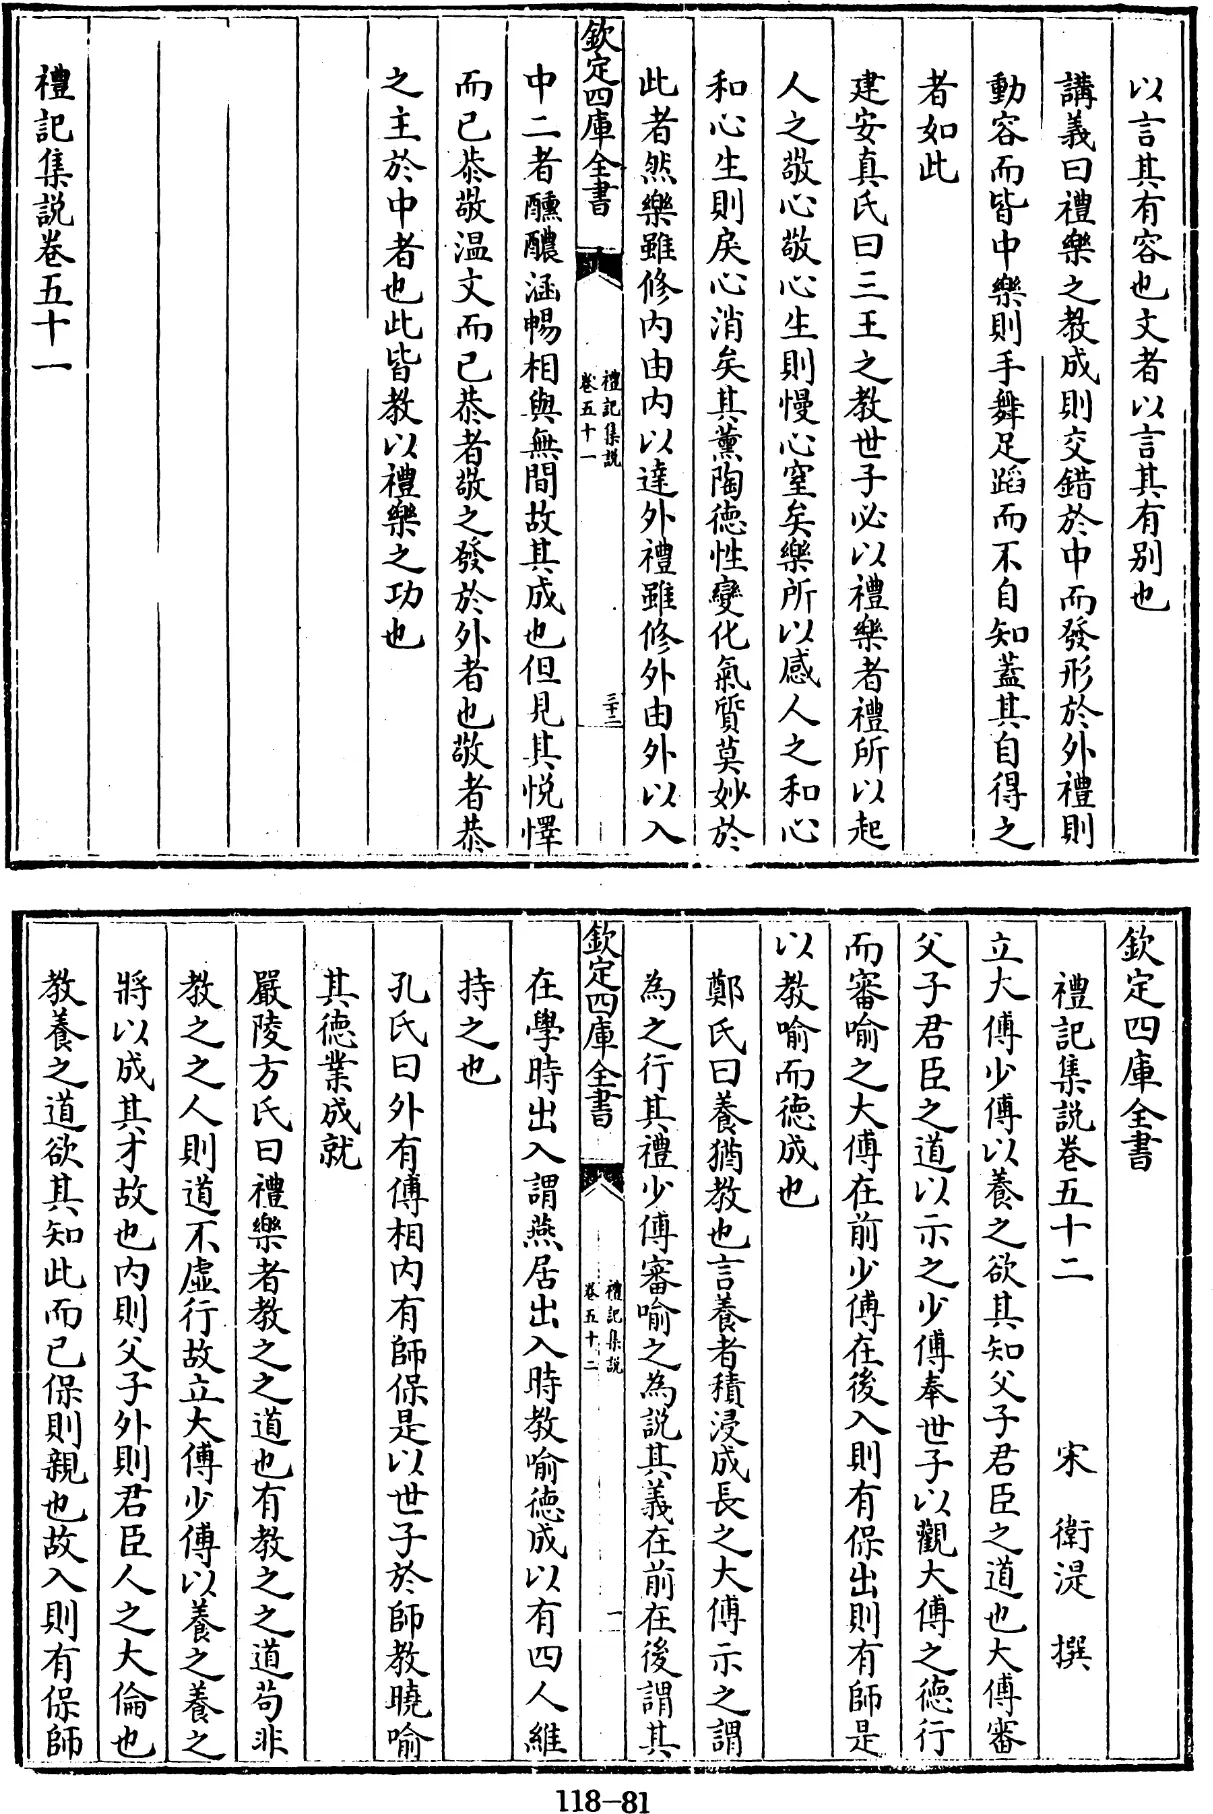 以言其有容也文者以言其有别也
講義曰禮樂之教成則交錯於中而發形於外禮則
動容而皆中樂則手舞足蹈而不自知蓋其自得之
者如此
建安真氏曰三王之教世子必以禮樂者禮所以起
人之敬心敬心生則慢心窒矣樂所以感人之和心
和心生則戾心消矣其薰陶德性變化氣質莫妙於
此者然樂雖修内由内以達外禮雖修外由外以入
欽定四庫全書
禮記集說
卷五十一
三十二
中二者醺醲涵暢相與無間故其成也但見其悦懌
而已恭敬温文而已恭者敬之發於外者也敬者恭
之主於中者也此皆教以禮樂之功也
禮記集說卷五十一
欽定四庫全書
禮記集說卷五十二 宋 衛湜 撰
立大傅少傅以養之欲其知父子君臣之道也大傅審
父子君臣之道以示之少傅奉世子以觀大傅之德行
而審喻之大傅在前少傅在後入則有保出則有師是
以教喻而德成也
鄭氏曰養猶教也言養者積浸成長之大傅示之謂
為之行其禮少傅審喻之為說其義在前在後謂其
欽定四庫全書
禮記集說
卷五十二
一
在學時出入謂燕居出入時教喻德成以有四人維
持之也
孔氏曰外有傅相内有師保是以世子於師教曉喻
其德業成就
嚴陵方氏曰禮樂者教之之道也有教之之道苟非
教之之人則道不虚行故立大傅少傅以養之養之
將以成其才故也内則父子外則君臣人之大倫也
教養之道欲其知此而已保則親也故入則有保師
118-81